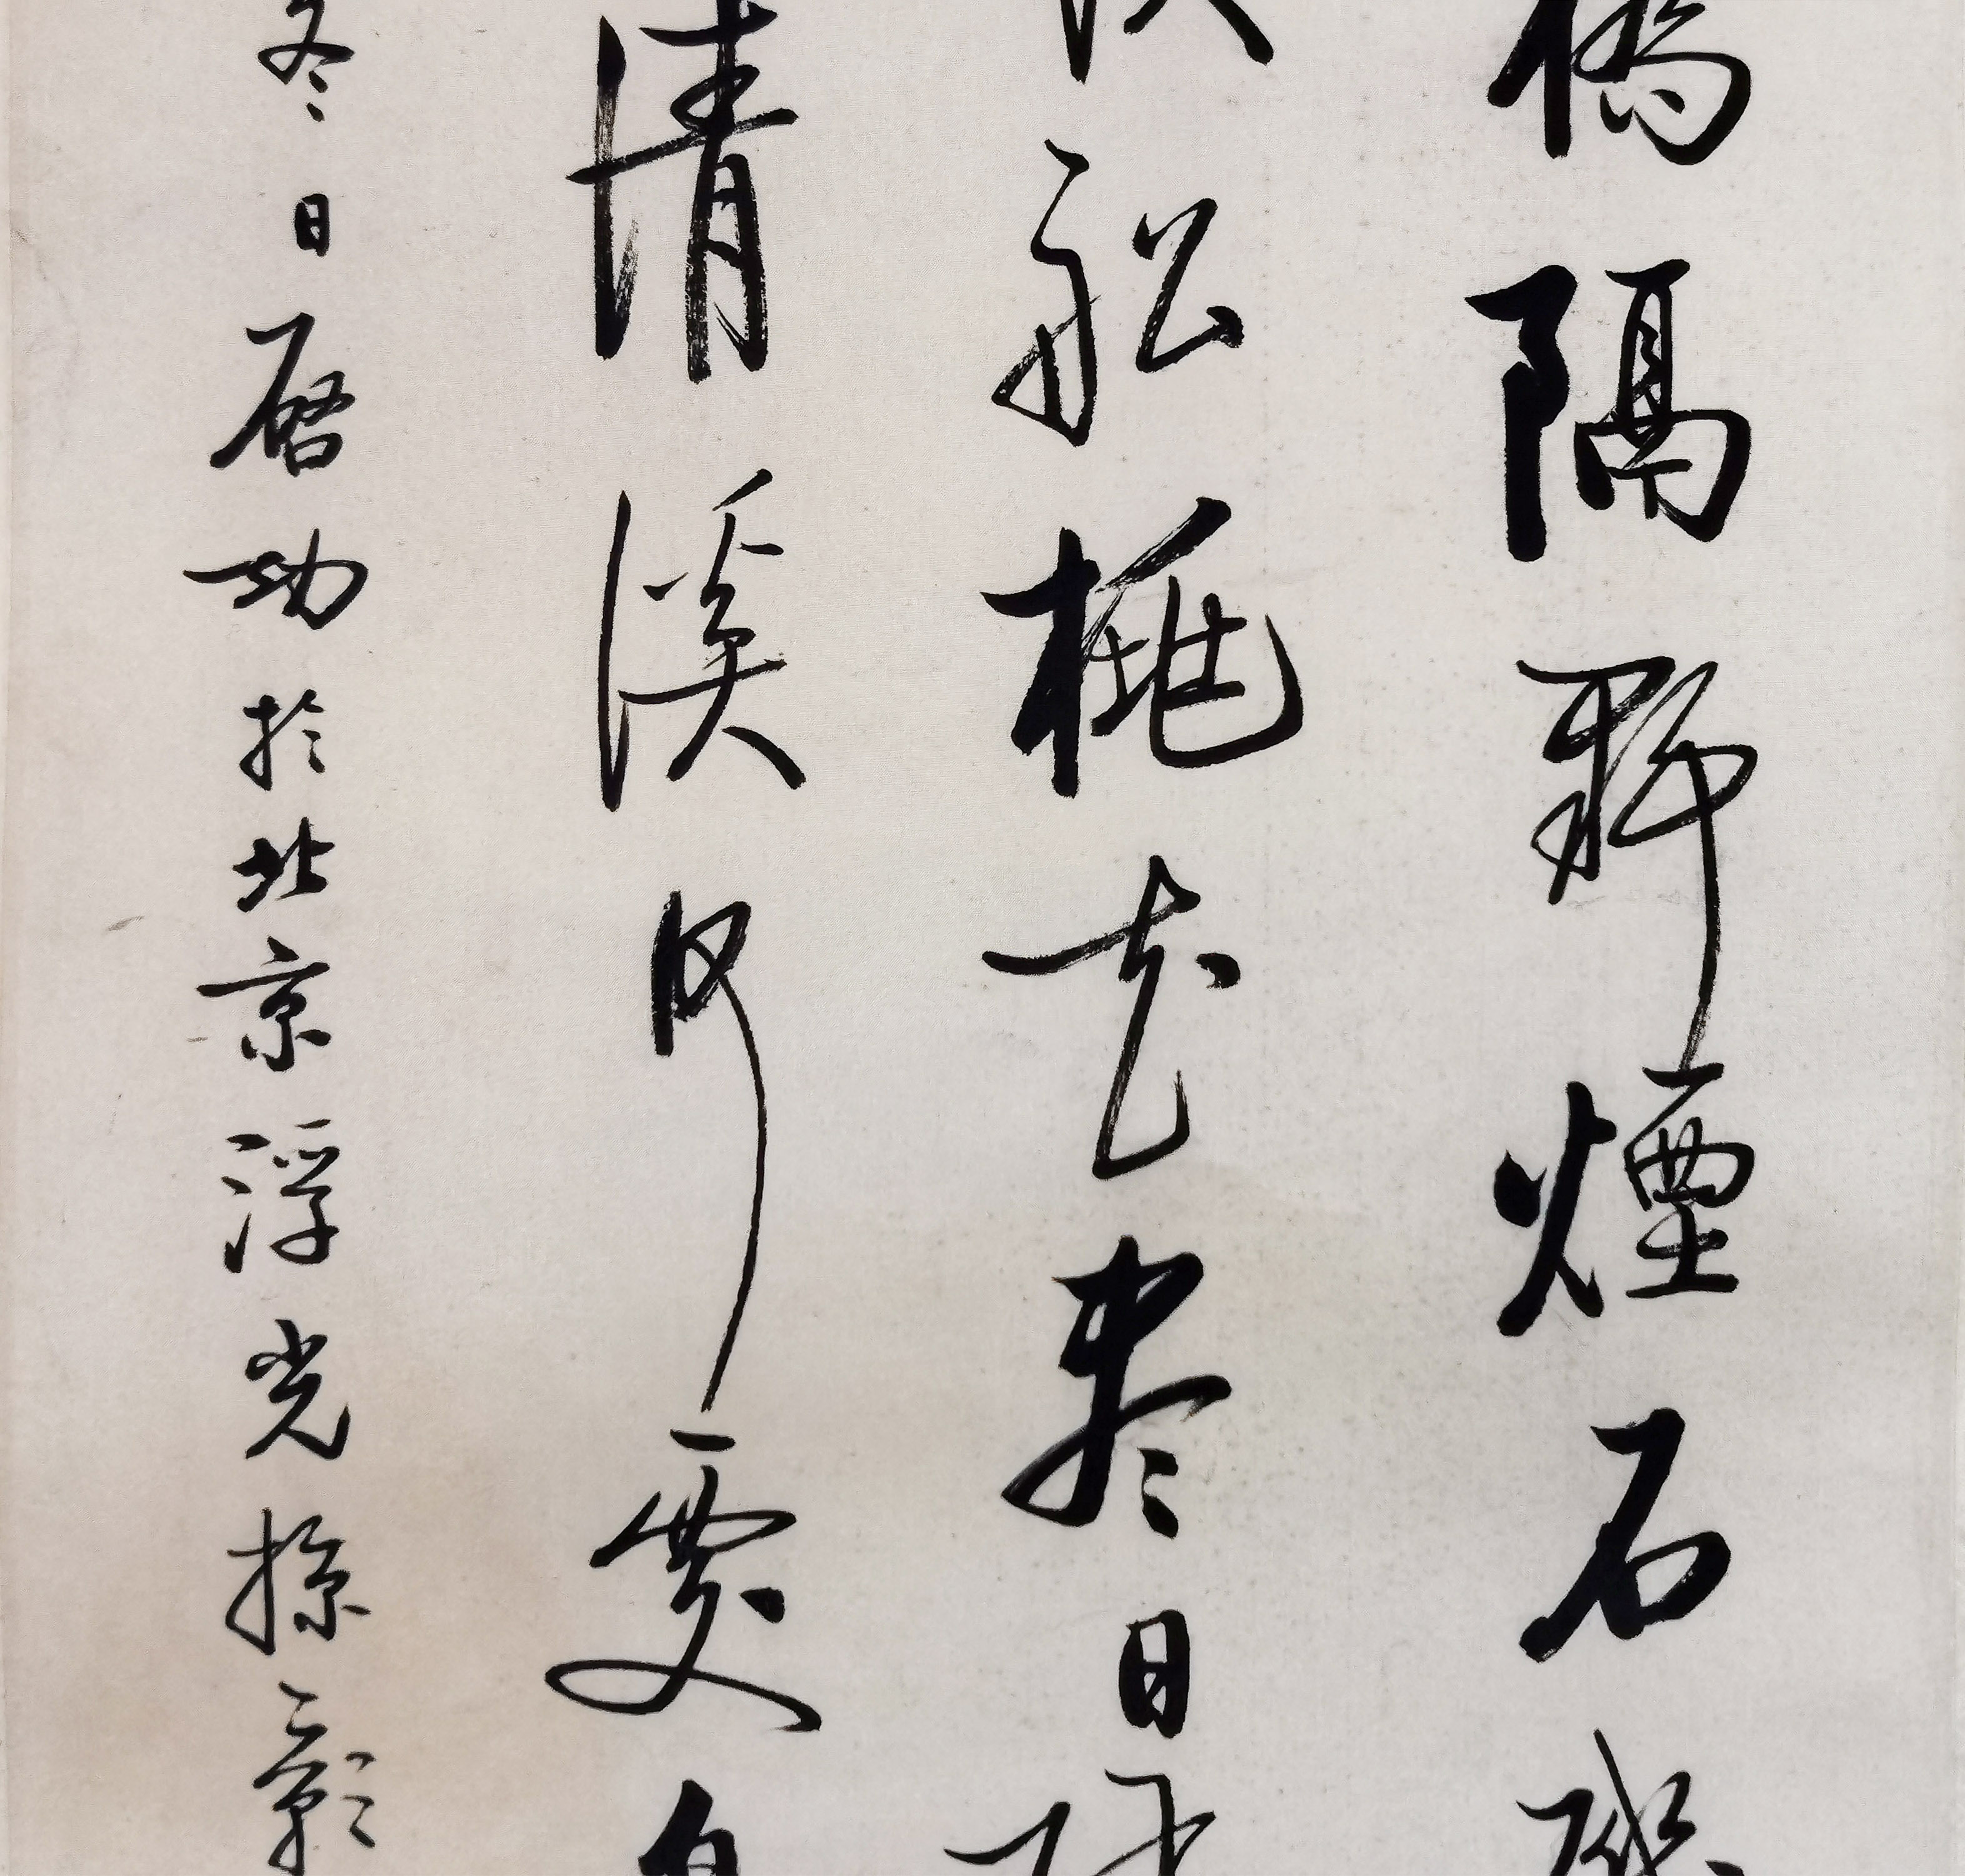 橋隔野煙石磯
船桃花盡日隨
清溪何處邊
冬日啟功於北京浮光掠影